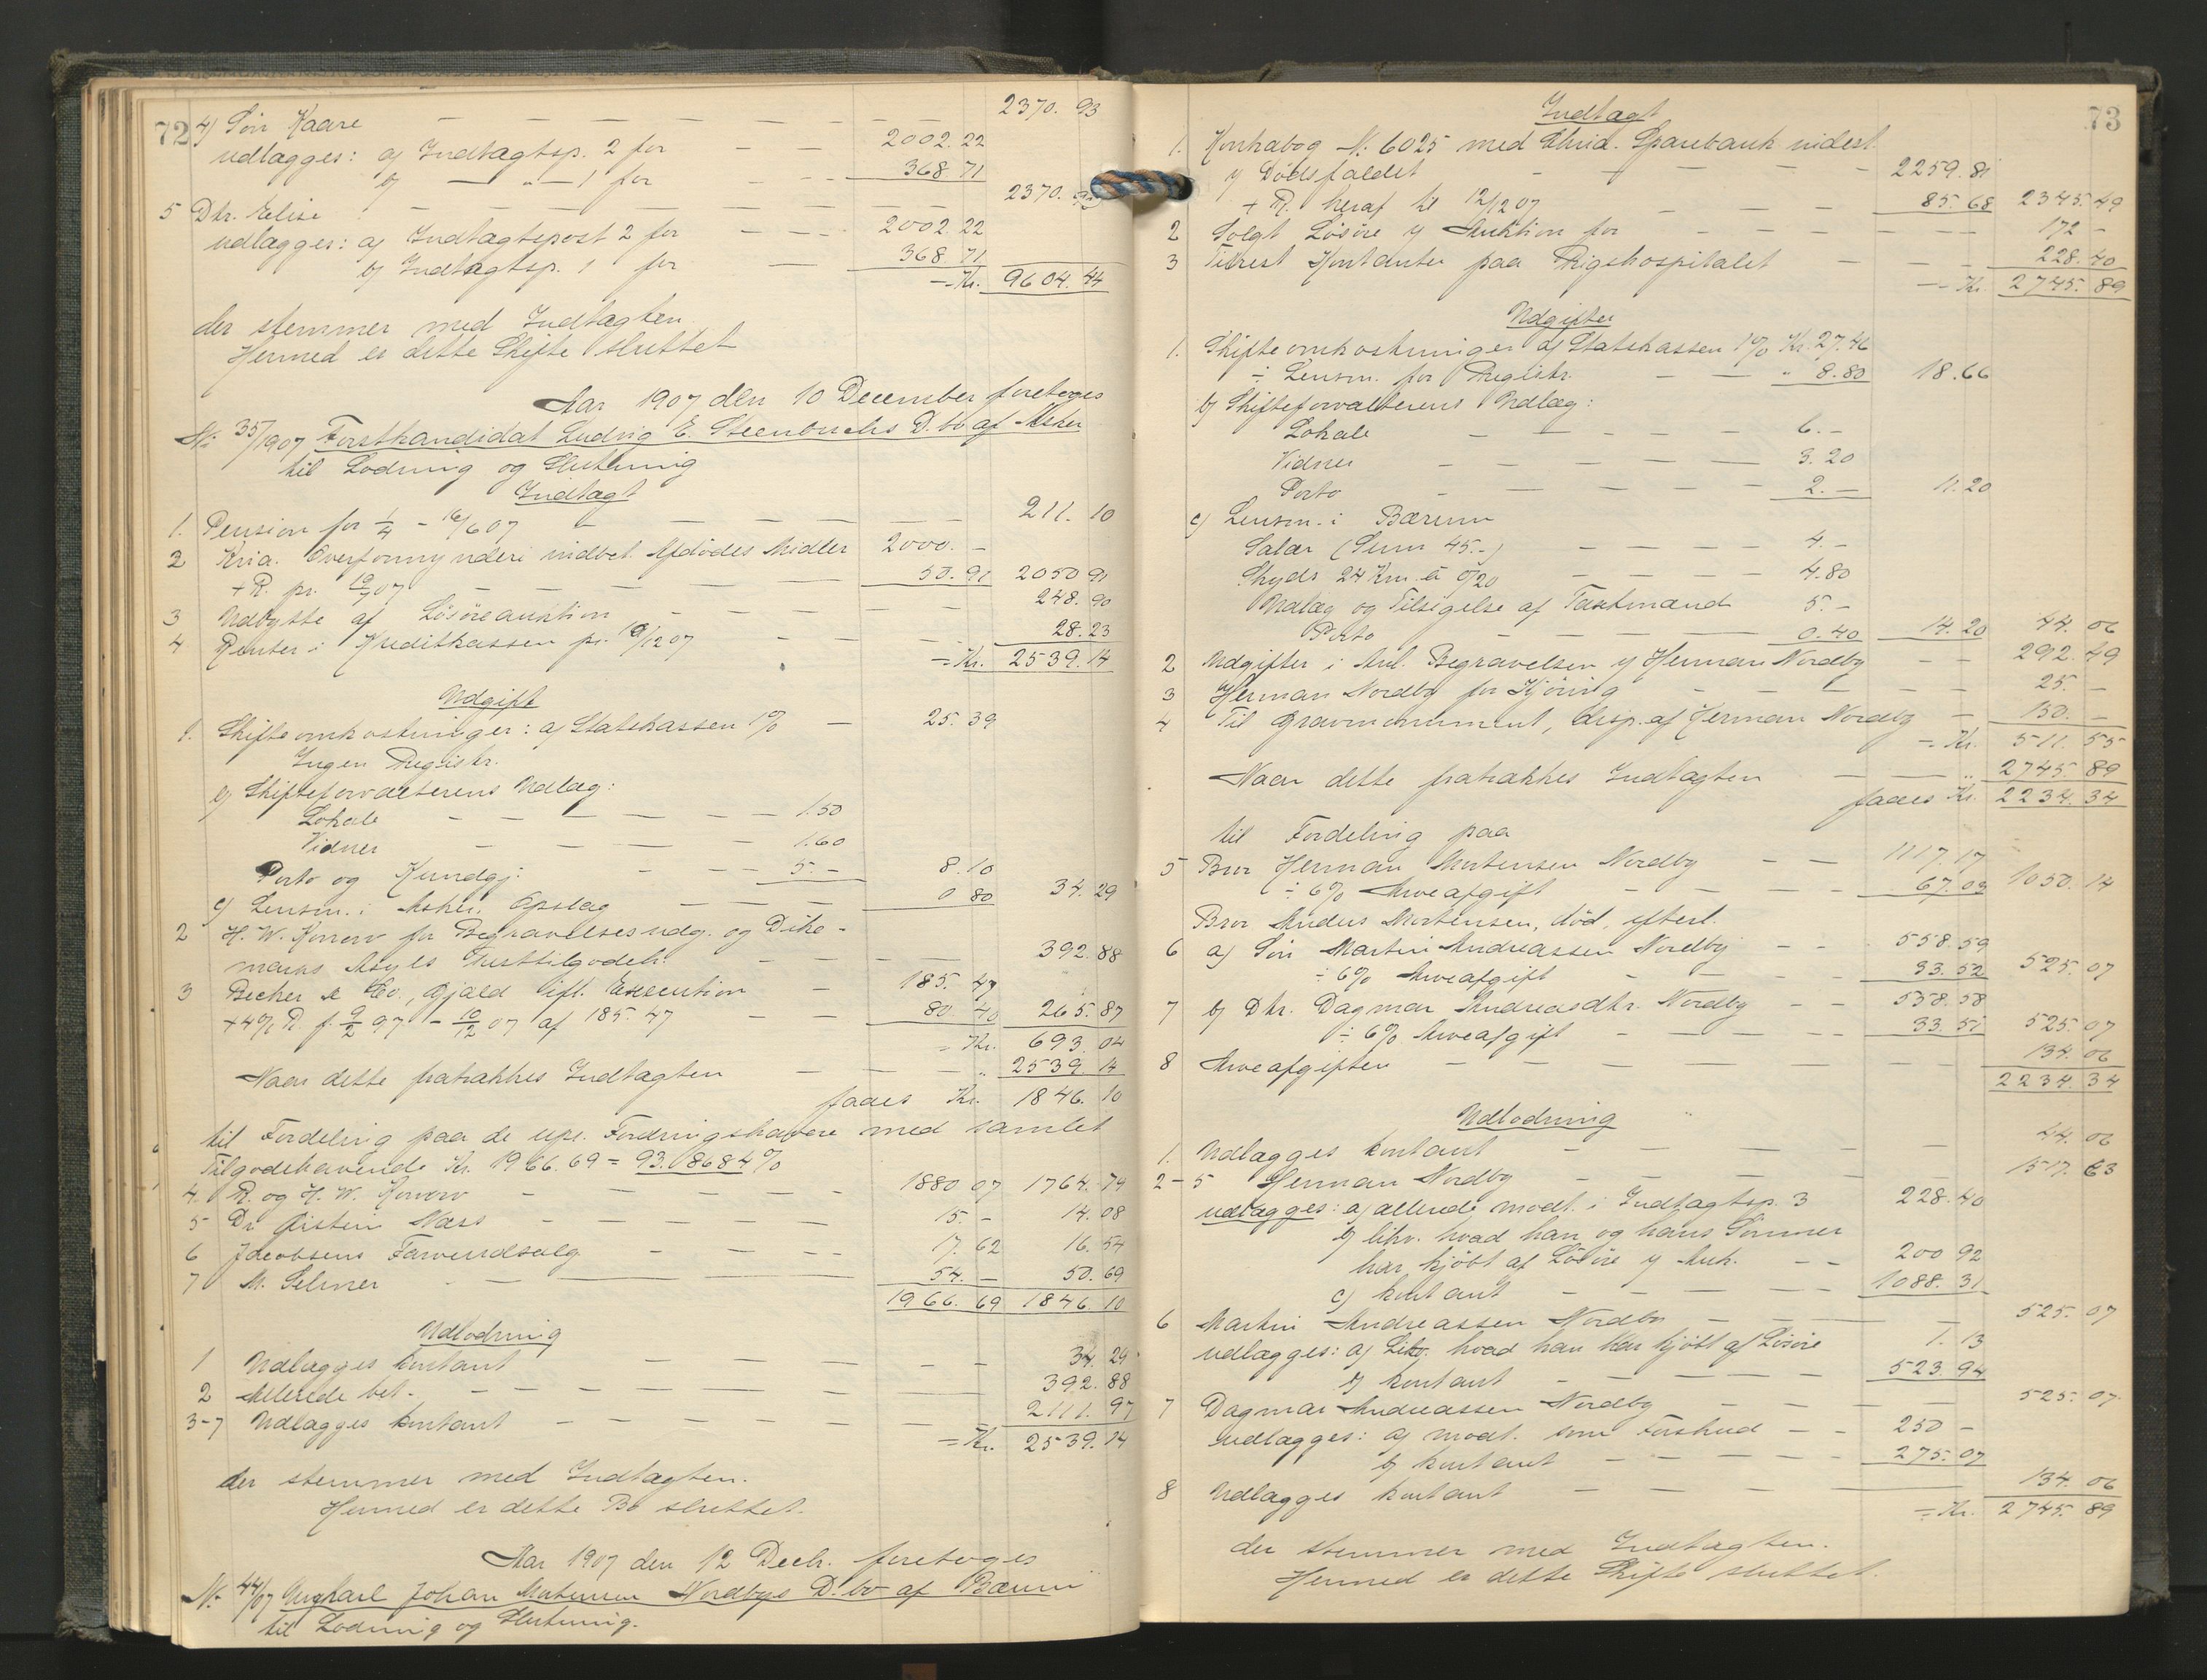 72
4) Søn Kaare — — — — — — — 2370. 93
udlægges: a) Indtægtsp. 2 for — — 2002. 22
b) — „ — 1 for — — 368 71
5 Dtr. Elise — — — — — — 2370. 93
udlægges: a) Indtægtspost 2 for — — — 2002 22
b) Indtægtsp. 1 for — 368 71
= Kr. 9604. 44
der stemmer med Indtægten.
Hermed er dette Skifte sluttet
Aar 1907 den 10 December foretoges
No 35/1907 Forstkandidat Ludvig E. Steenbuchs D.bo af Asker
til Lodning og Slutning
Indtægt
1. Pension for 1/4 – 16/6 07 — — — — 211. 10
2 Kria. Overformynderi indbet. Afdødes Midler 2000. –
+ R. pr. 10/7 07 — — — — 50. 91 2050 91
3 Udbytte af Løsøreauktion — — — — 248. 90
4 Renter i Kreditkassen pr. 10/12 07 — — — 28. 23
= Kr. 2539. 14
Udgift
1. Skifteomkostninger: a) Statskassen 1% — 25. 39
Ingen Registr.
b) Skifteforvalterens Udlæg:
Lokale — — — — — — 1.50
Vidner — — — — 1.60
Porto og Kundgj: — — — 5. – 8. 10
c) Lensm. i Asker, Opslag — — — 0 80 34. 29
2 H. W. Korrerv for Begravelsesudg. og Dike-
marks Asyls Resttilgodeh. — — — — 392. 88
3 Becker & Co., Gjæld ift. Execution — 185. 47
+ 4% R. f. 9/2 97 – 10/12 07 af 185. 47 — — 80. 40 265. 87
= Kr. 693. 04
Naar dette fratrækkes Indtægten — — — „ 2539. 14
faaes Kr. 1846. 10
til Fordeling paa de upr. Fordringshavere med samlet
Tilgodehavende Kr. 1966.69 = 93.8684%
4. R. og H. W. Korrerv — — — — — 1880 07 1764. 74
5 Dr. Øistein Næss — — — — — — 15. – 14. 08
6 Jacobsens Farveudsalg — — — — 17. 62 16. 54
7 M. Selmer — — — — — 54. – 50. 69
1966. 69 1846. 10
Udlodning
1 Udlægges kontant — — — — — 34. 29
2 Allerede bet. — — — — — — — 392. 88
3-7 Udlægges kontant — — — — — — 2111. 97
= Kr. 2539. 14
der stemmer med Indtægten.
Hermed er dette Bo sluttet.
Aar 1907 den 12 Decbr. foretoges
No 44/07 Ungkarl Johan Mortensen Nordbys D.bo af Bærum
til Lodning og Slutning.
73
Indtægt
1. Kontrabog No. 6025 med Chrid. Sparebank indest.
v) Dødsfaldet — — — — — 2259. 81
+ R. heraf til 12/12 07 — — — 85. 68 2345. 49
2 Solgt Løsøre v) Auktion for — — — — — — 172 –
3 Tilrest Kontanter paa Rigshospitalet — — — 228. 40
= Kr. 2745. 89
Udgifter
1. Skifteomkostninger a) Statskassen 1% Kr. 27.46
÷ Lensm. for Registr. — — „ 8.80 18.66
b) Skifteforvalterens Udlæg:
Lokale — — — — — 6. –
Vidner — — — — — 3. 20
Porto — — — — — 2. – 11. 20
c) Lensm. i Bærum
Salær (Sum 45.–) — — — — 4. –
Skyds 24 Km. à 0/20 — — — — 4.80
Udlæg og Tilsigelse af Taxtmænd 5. –
Porto — — — — — 0.40 14. 20 44. 06
2 Udgifter i Anl. Begravelsen v) Herman Nordby — — 292. 49
3 Herman Nordby for Kjøring — — — — — 25. –
4 Til Gravmonument, disp. af Herman Nordby — 150. –
= Kr. 511. 55
Naar dette fratrækkes Indtægten — — „ 2745. 89
faaes Kr. 2234. 34
til Fordeling paa
5 Bror Herman Mortensen Nordby — — 1117. 17
÷ 6% Arveafgift — — — 67. 03 1050. 14
Bror Anders Mortensen, død, efterl.
6 a) Søn Martin Andreassen Nordby — — 558. 59
÷ 6% Arveafgift — — — 33. 52 525. 07
7 b) Dtr. Dagmar Andreasdtr. Nordby — — 558. 58
÷ 6% Arveafgift — — — — 33. 51 525. 07
8 Arveafgiften — — — — — — — 134. 06
2234. 34
Udlodning
1. Udlægges kontant — — — — — 44. 06
2-5 Herman Nordby — — — — — — 1517. 63
udlægges: a) allerede modt. i Indtægtsp. 3 228. 40
b) likv. hvad han og hans Sønner
har kjøbt af Løsøre v) Auk. — — 200 92
c) kontant — — — — — 1088. 31
6 Martin Andreassen Nordby — — — — 525. 07
udlægges: a) Likv. hvad han har kjøbt af Løsøre 1. 13
b) kontant — — — — — 523. 94
7 Dagmar Andreassen Nordby — — — — — 525. 07
udlægges: a) modt. som Forskud — — 250 –
b) kontant — — — — — 275. 07
8 Udlægges kontant — — — — — 134. 06
= Kr. 2745. 89
der stemmer med Indtægten.
Hermed er dette Skifte sluttet.